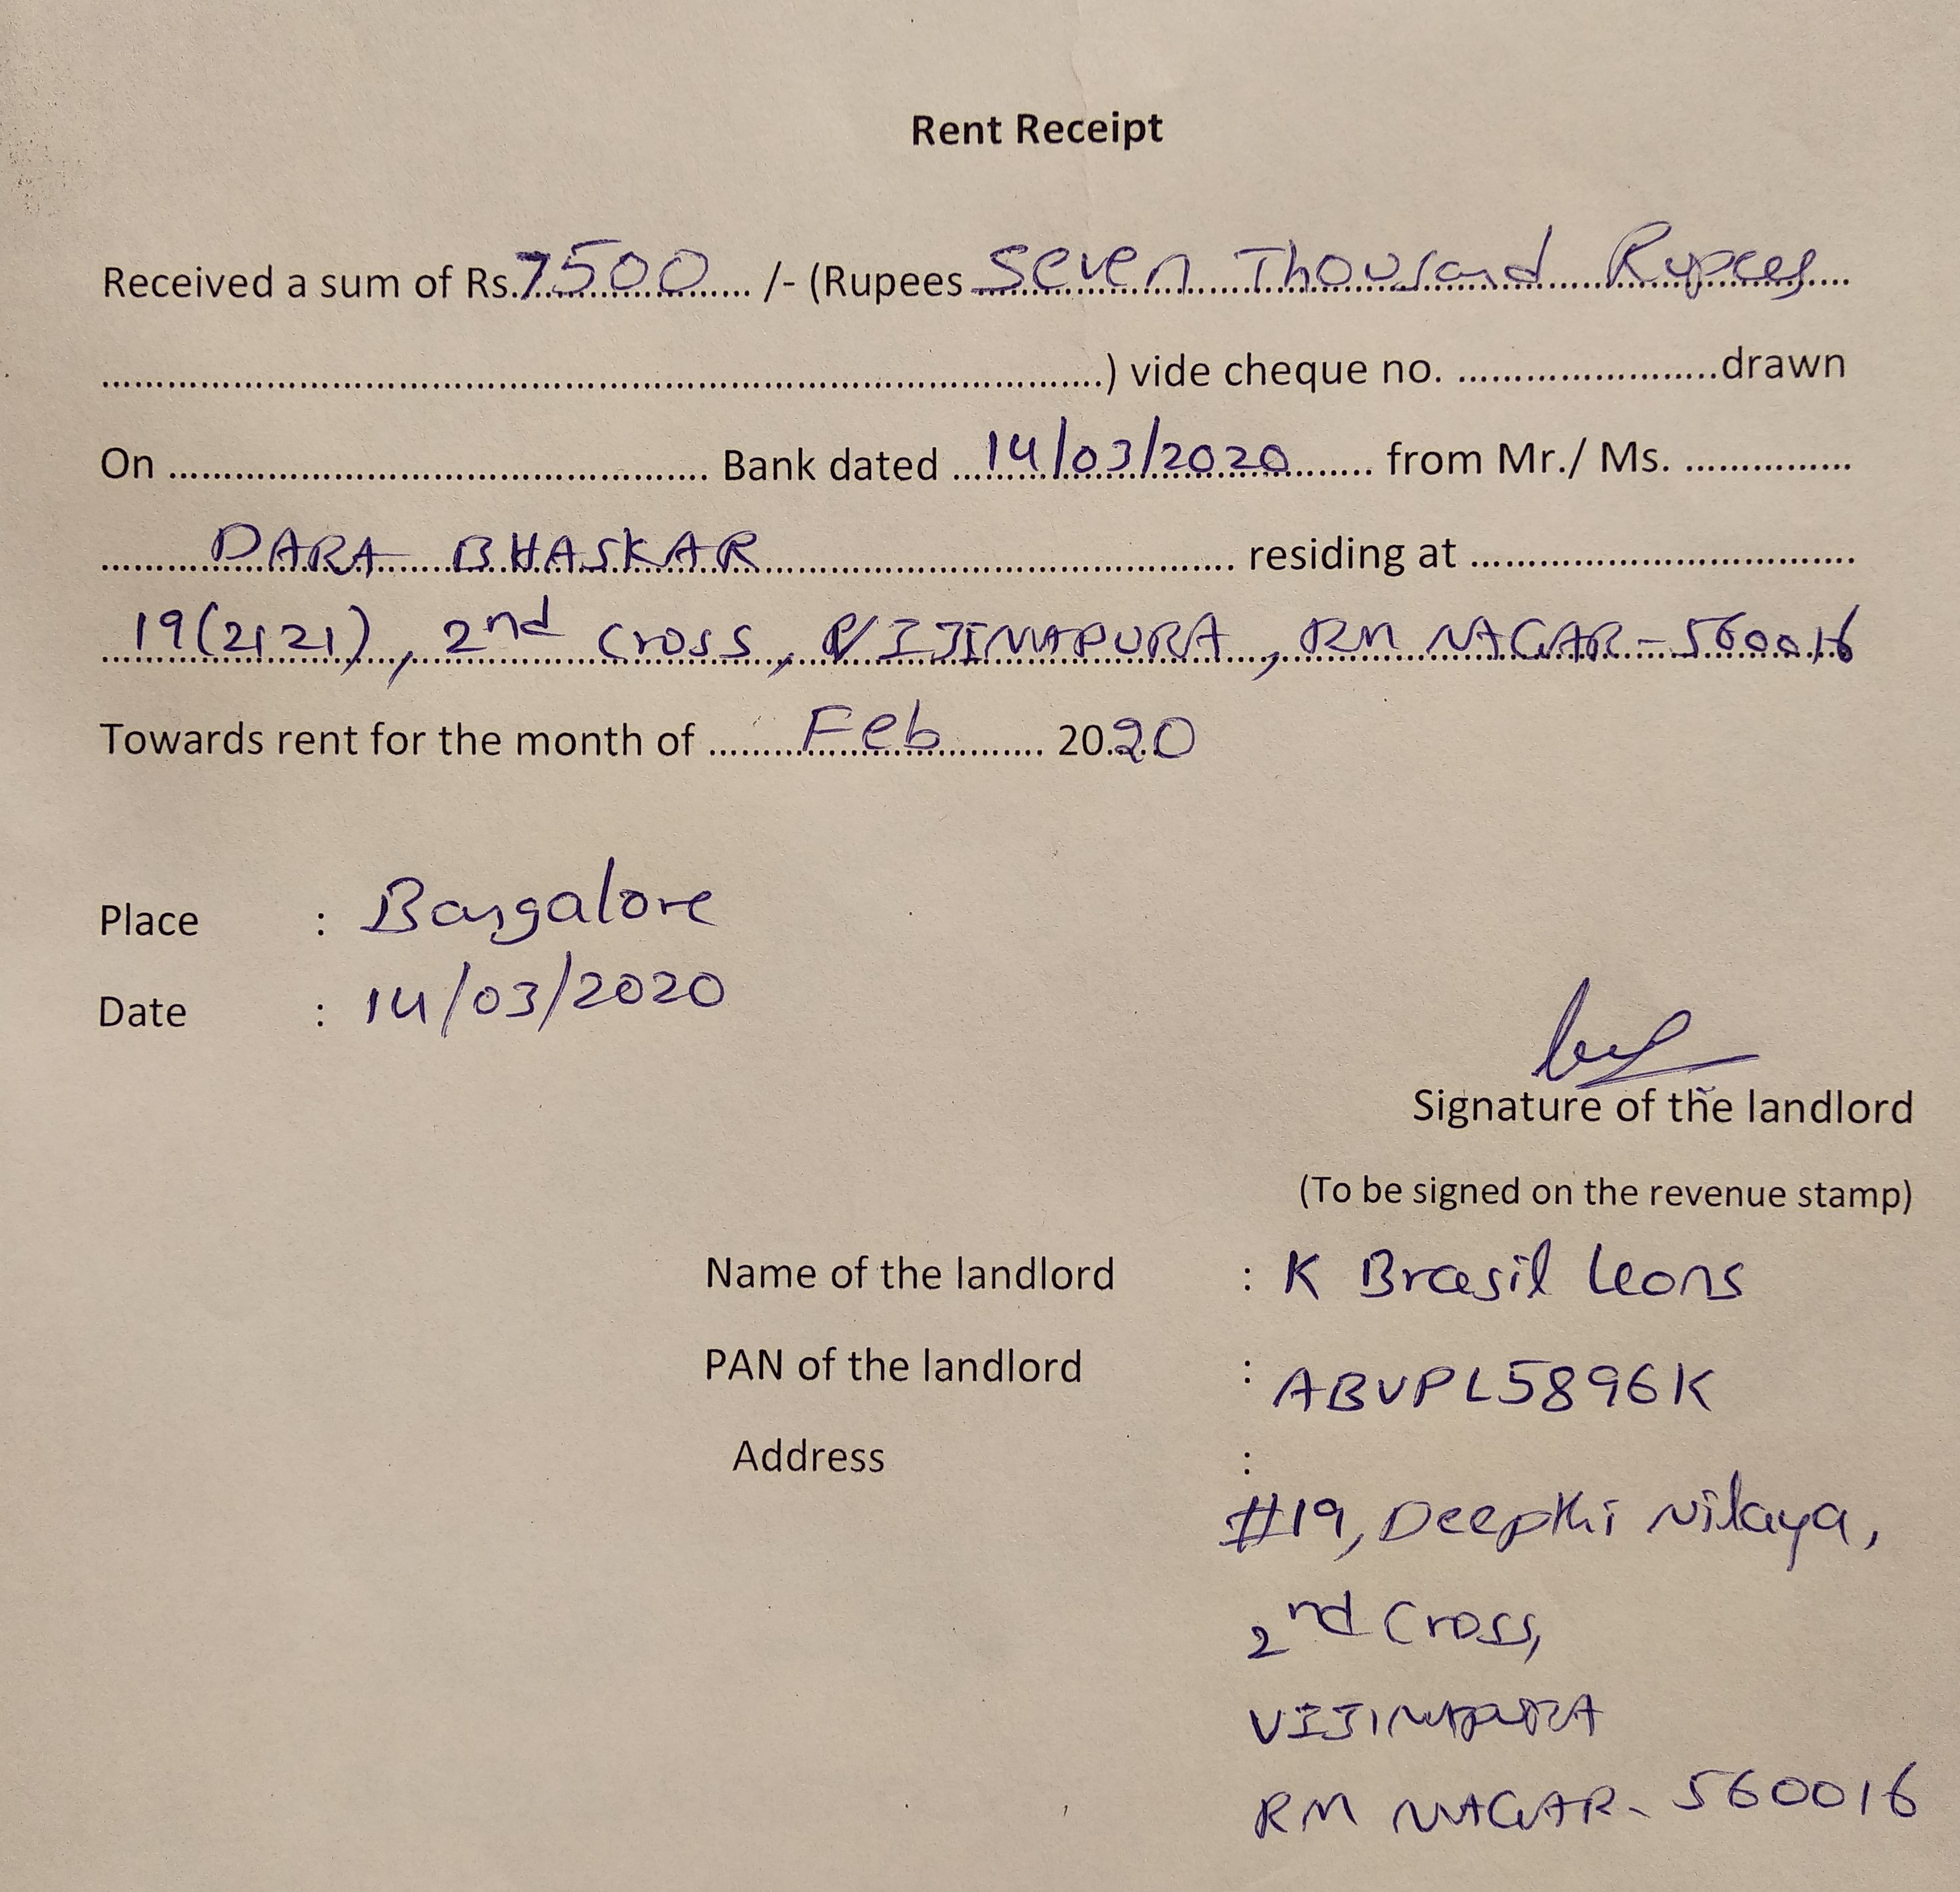 Rent Receipt
Received a sum of Rs.7500 /- (Rupees Seven Thousand Rupees
) vide cheque no. drawn
On Bank dated 14/03/2020 from Mr./ Ms.
DARA BHASKAR residing at
19(2121), 2nd Cross, VIJINAPURA, RM NAGAR-560016
Towards rent for the month of Feb 2020
Place : Bangalore
Date : 14/03/2020
Signature of the landlord
(To be signed on the revenue stamp)
Name of the landlord : K Brasil Leons
PAN of the landlord : ABVPL5896K
Address :
#19, Deepthi Nilaya,
2nd Cross,
VIJINAPURA
RM NAGAR- 560016